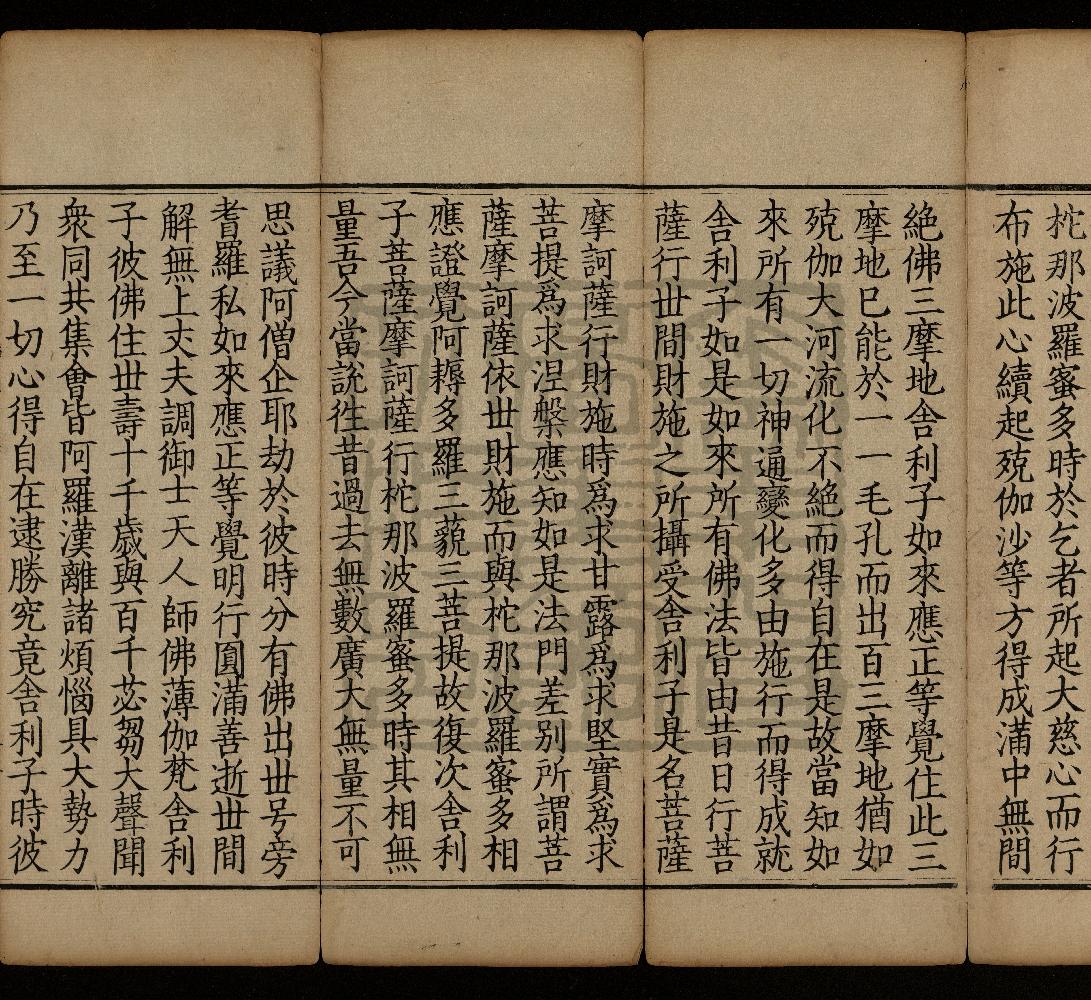 柁那波羅蜜多時於乞者所起大慈心而行
布施此心續起殑伽沙等方得成滿中無間
絶佛三摩地舎利子如來應正等覺住此三
摩地巳能於一一毛孔而出百三摩地猶如
殑伽大河流化不絶而得自在是故當知如
來所有一切神通變化多由施行而得成就
舎利子如是如來所有佛法皆由昔日行菩
薩行丗間財施之所攝受舎利子是名菩薩
摩訶薩行財施時爲求甘露爲求堅實爲求
菩提爲求涅槃應知如是法門差别所謂菩
薩摩訶薩依丗財施而與柁那波羅蜜多相
應證覺阿耨多羅三藐三菩提故復次舎利
子菩薩摩訶薩行柁那波羅蜜多時其相無
量吾今當説徃昔過去無數廣大無量不可
思議阿僧企耶劫於彼時分有佛出丗号旁
耆羅私如來應正等覺明行圎滿善逝丗間
解無上丈夫調御士天人師佛薄伽梵舎利
子彼佛住丗壽十千歳與百千苾芻大聲聞
衆同共集㑹皆阿羅漢離諸煩惱具大勢力
乃至一切心得自在逮勝究竟舎利子時彼